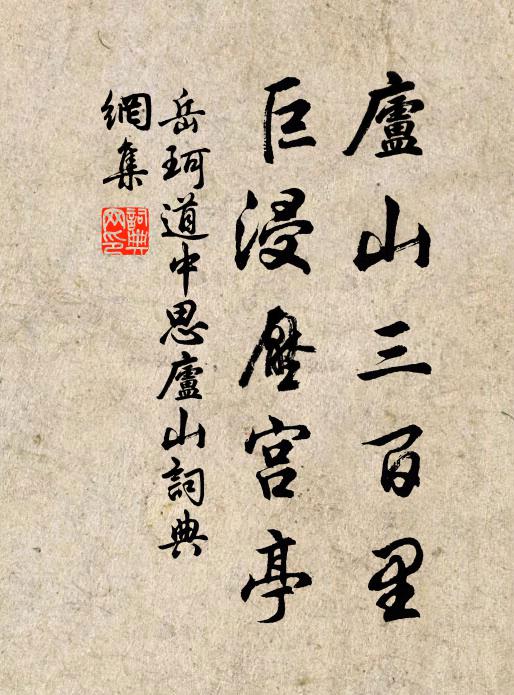 廬山三百里
巨浸壓宫亭
岳珂道中思廬山詞典
網集
詞典网印